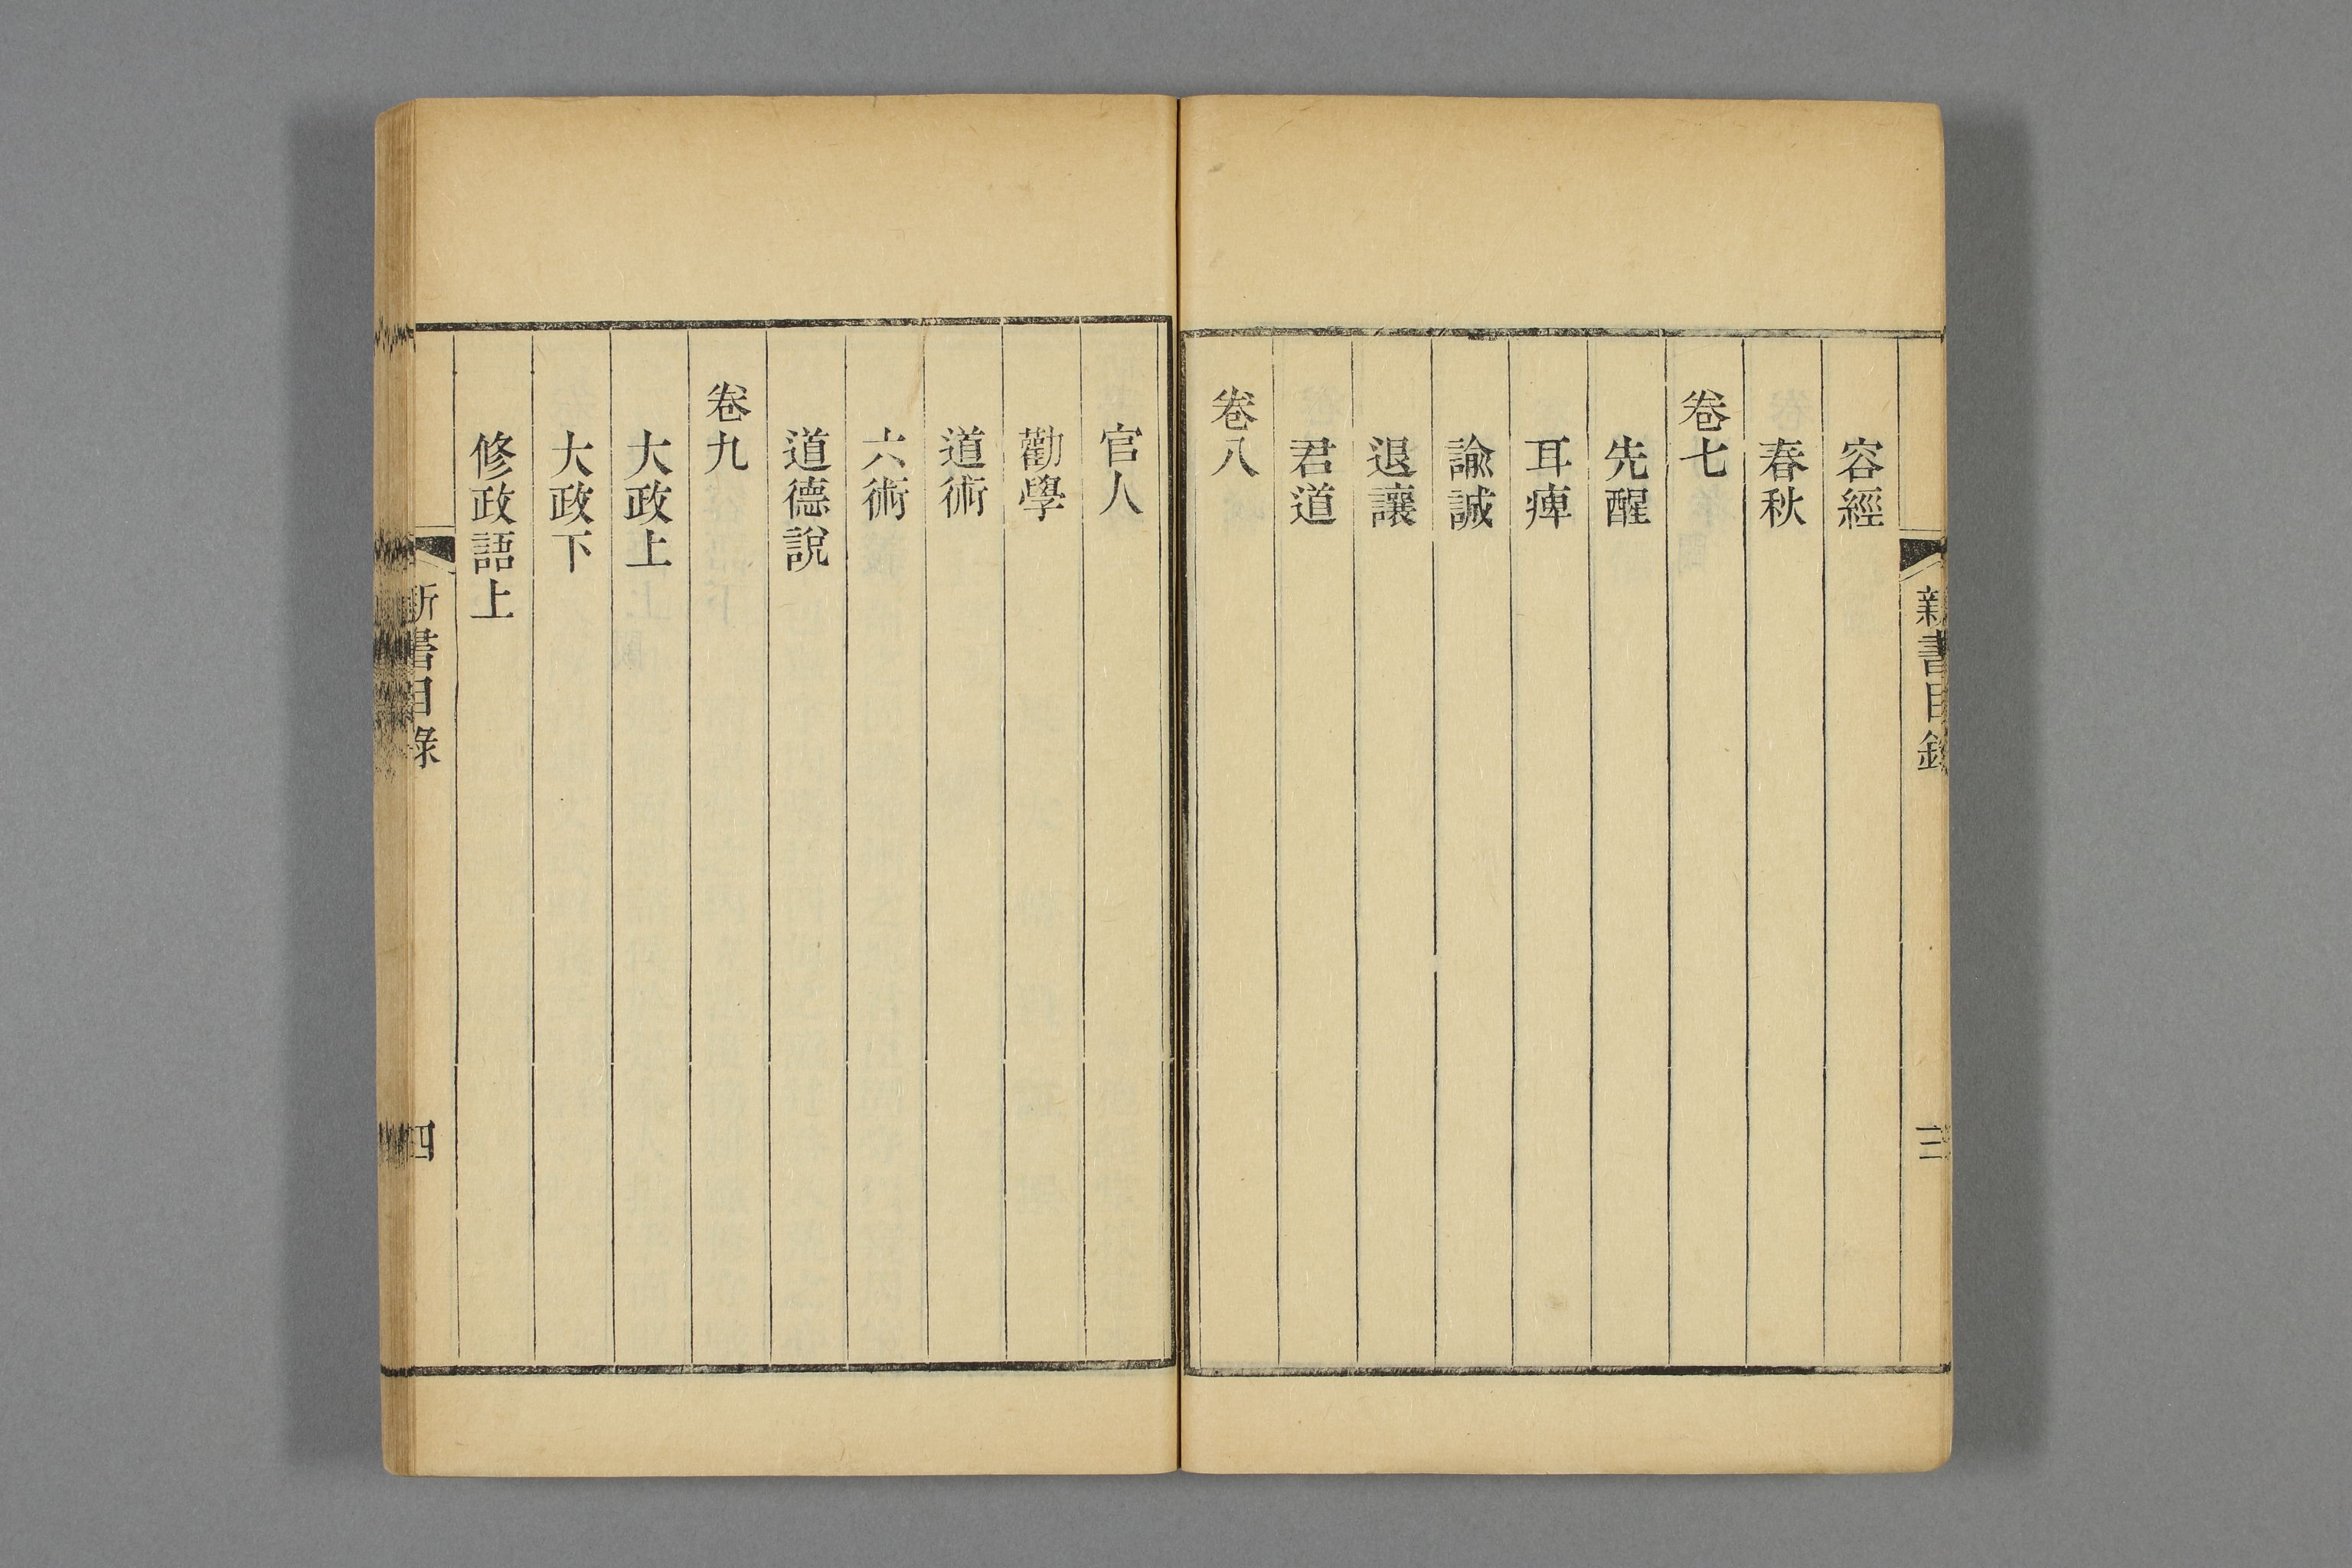 新書目錄
三
容經
春秋
卷七
先醒
耳痺
諭誠
退讓
君道
卷八
官人
勸學
道術
六術
道德說
卷九
大政上
大政下
修政語上
新書目錄
四